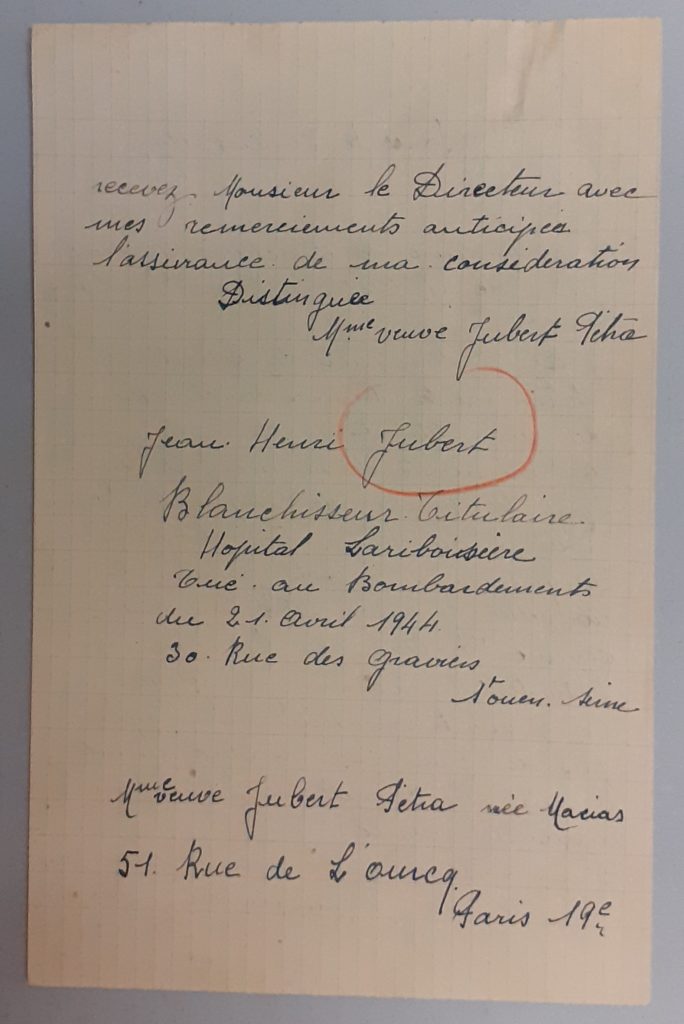 recevez Monsieur le Directeur avec
mes remerciements anticipés
l'assurance de ma considération
Distinguée
Mme veuve Jubert Pétra
Jean Henri Jubert
Blanchisseur Titulaire
Hopital Lariboisière
Tué au Bombardements
du 21 Avril 1944
30. Rue des Graviers
St ouen. Seine
Mme veuve Jubert Pétra née Macias
51. Rue de L'ourcq.
Paris 19e